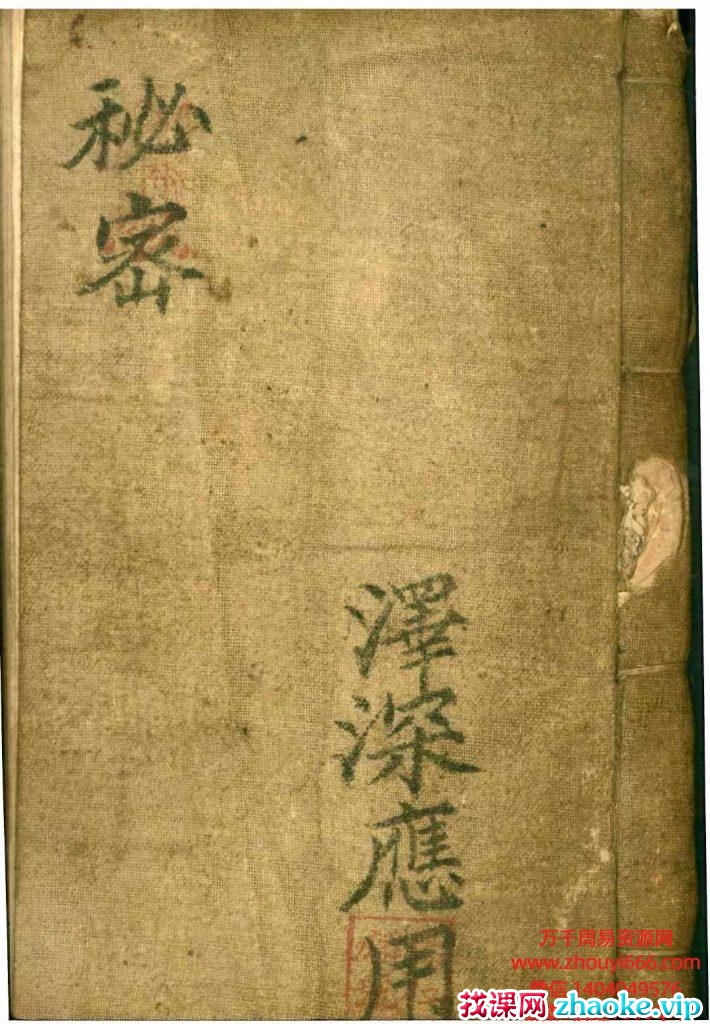 秘密
澤深應用
万千周易资源网
www.zhouyi666.com
找课网zhaoke.vip